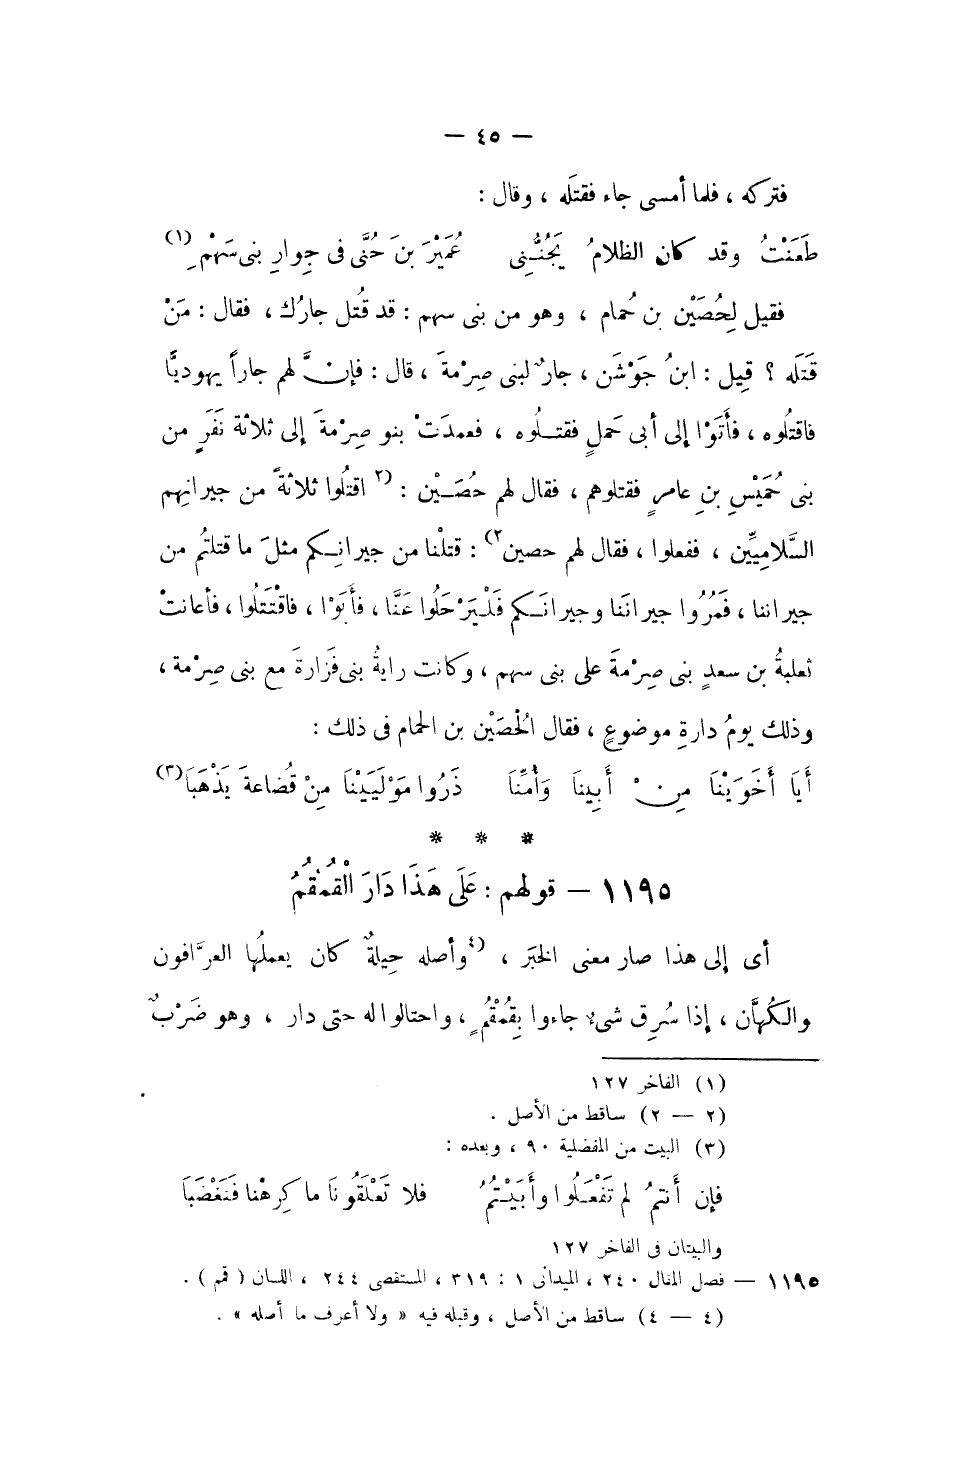 — ٤٥ —
فتركه ، فلما أمسى جاء فقتلَه ، وقال :
طَعَنْتُ وقد كان الظلامُ يَجُنُّنِى عُمَيْرَ بنَ حُنَّى فى جِوارِ بنى سَهْمِ (١)
فقيل لِحُصَيْن بن حُمام ، وهو من بنى سهم : قد قُتل جارُك ، فقال : مَنْ
قَتَلَه ؟ قِيل : ابنُ جَوْشَن ، جارٌ لبنى صِرْمةَ ، قال : فإنَّ لهم جاراً يهوديًّا
فاقتلُوه ، فأَتَوْا إلى أبى حَملٍ فقتلُوه ، فعمدَتْ بنو صِرْمةَ إلى ثلاثة نفَرٍ من
بنى حُمَيْسِ بنِ عامرٍ فقتلوهم ، فقال لهم حصَيْن : (٢ اقتلُوا ثلاثةً من جيرانِهم
السَّلامِيِّين ، ففعلوا ، فقال لهم حصين ٢) : قتلْنا من جيرانِكم مثلَ ما قتلتُم من
جيراننا ، فَمُرُوا جيرانَنا وجيرانَكم فَلْيَرْحَلُوا عَنَّا ، فأَبَوْا ، فاقْتَتَلُوا ، فأعانتْ
ثعلبةُ بن سعدٍ بنى صِرْمةَ على بنى سهم ، وكانت رايةُ بنى فَزارةَ مع بنى صِرْمة ،
وذلك يومُ دارةِ موضوعٍ ، فقال الْحُصَيْن بن الحمام فى ذلك :
أَيَا أَخَوَيْنَا مِنْ أَبِينَا وَأُمِّنَا ذَرُوا مَوْلَيَيْنَا مِنْ قُضاعةَ يَذْهَبَا (٣)
* * *
١١٩٥ — قولهم : عَلَى هَذَا دَارَ الْقُمْقُمُ
أى إلى هذا صار معنى الخبَر ، (٤ وأصله حِيلةٌ كان يعملُها العرَّافون
والكهَّان ، إذا سُرِق شىءٌ جاءوا بِقُمْقُمٍ ، واحتالوا له حتى دار ، وهو ضَرْبٌ
(١) الفاخر ١٢٧
(٢ — ٢) ساقط من الأصل .
(٣) البيت من المفضلية ٩٠ ، وبعده :
فإن أَنتمُ لم تَفْعَلُوا وأَبَيْتُمُ فلا تَعْلَقُونَا ما كرِهْنا فَنَغْضَبَا
والبيتان فى الفاخر ١٢٧
١١٩٥ — فصل المقال ٢٤٠ ، الميدانى ١ : ٣١٩ ، المستقصى ٢٤٤ ، اللسان ( قمم ) .
(٤ — ٤) ساقط من الأصل ، وقبله فيه « ولا أعرف ما أصله » .